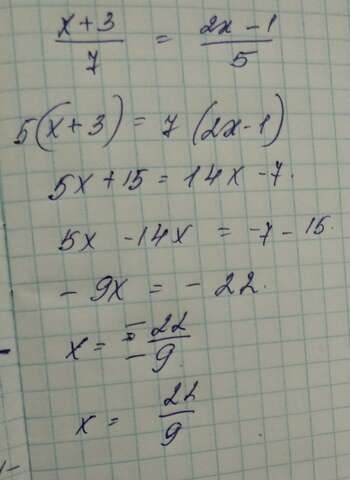 x+3/7 = 2x-1/5
5(x+3) = 7(2x-1)
5x+15 = 14x-7.
5x -14x = -7-15.
-9x = -22.
x = -22/-9
x = 22/9